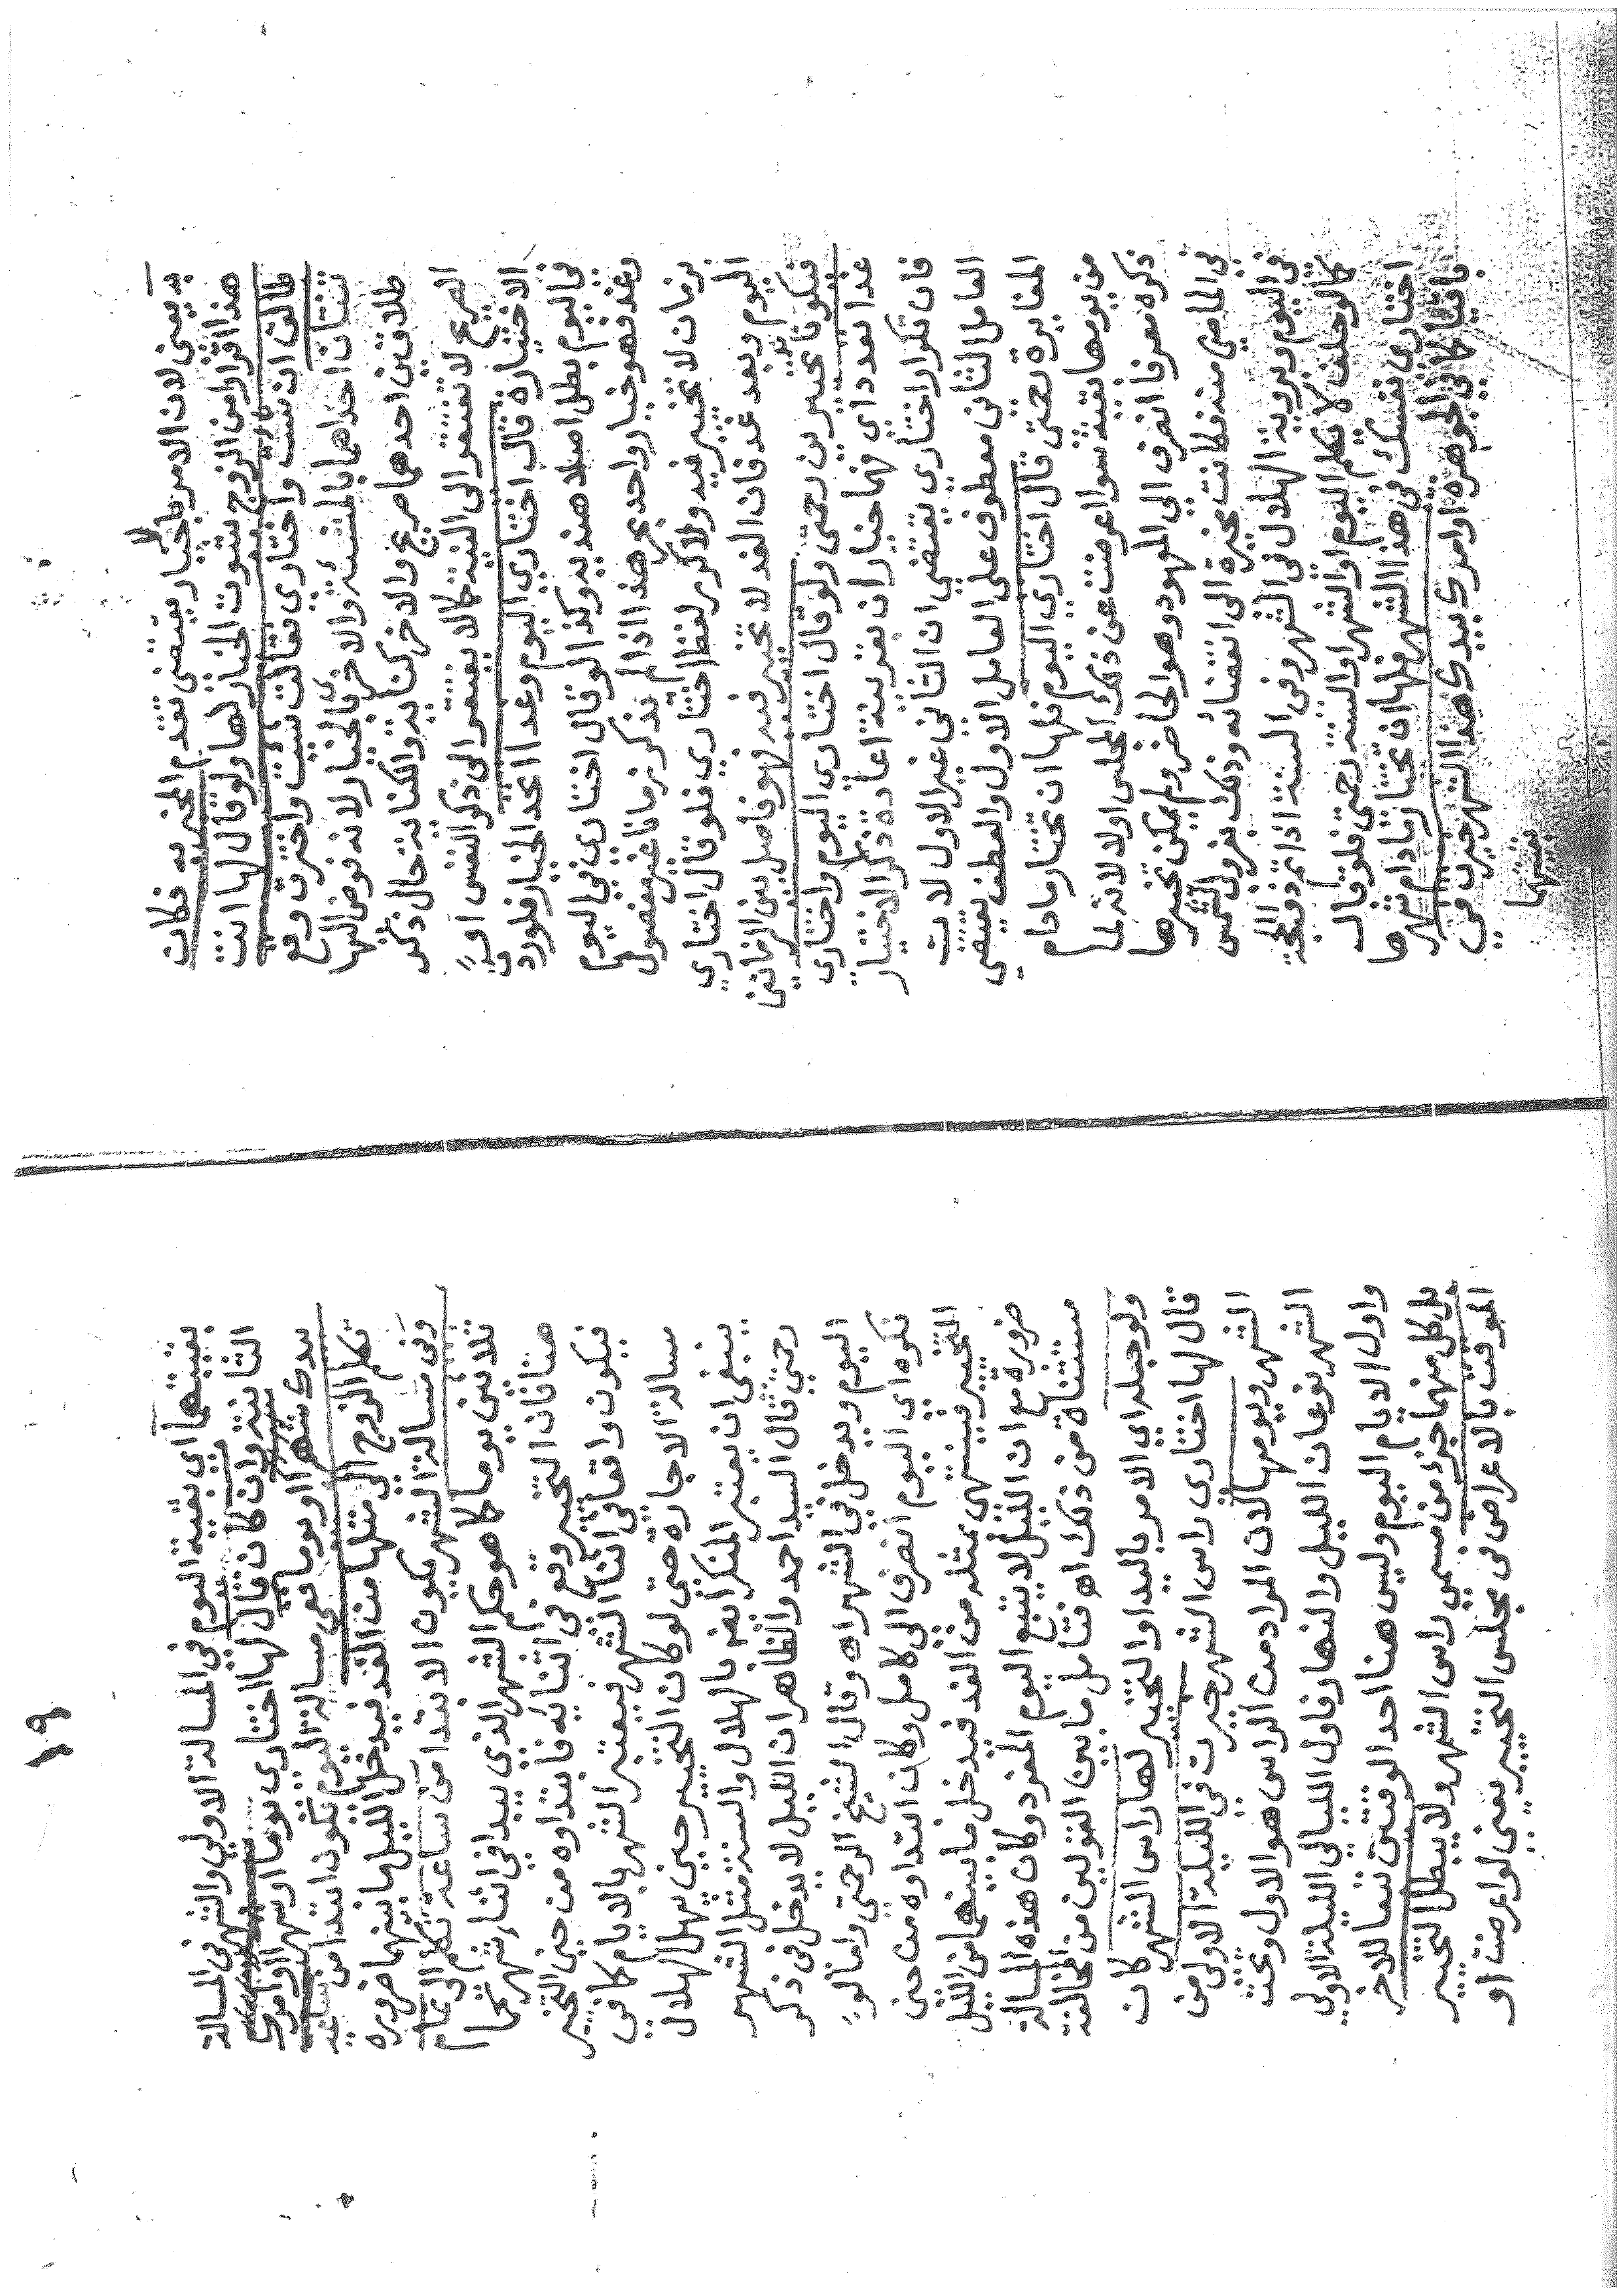 به يعني لان الامر باختيار يقتضي تقدم المخير به فكان
هذا اقرارا من الزوج بثبوت الخيار لها ولو قال لها انت
طالق ان شئت واختاري فقالت شئت واخترت وقع
ثنتان احداهما بالمشئة والاخرى بالخيار لانه فوض اليها
طلاقين احدهما صريح والاخر كناية والكناية حال ذكر
الصريح لا تفتقر الى النية كما لا يفتقر الى ذكر النفس او
الاختيارة قال اختاري اليوم وغدا اتحد الخيار فلو ردت
في اليوم بطل اصلا هنديه وكذا لو قال اختاري في اليوم
وغد فهو خيار واحد بحر هذا اذا لم يذكر زمانا غير مفصول
بزمان لا تخير فيه ولا كرر لفظ اختاري فلو قال اختاري
اليوم وبعد غد فان الغد لا تخير فيه فهو فاصل بين الزمانين
فيكونا تخييرين رحمتى ولو قال اختاري اليوم واختاري
غدا تعدد اي فهما خياران بقرينة اعادة ذكر الاختيار
فان تكرار اختاري يقتضي ان الثاني غير الاول لان
العامل الثاني معطوف على العامل الاول والعطف يقتضي
المغايرة رحمتى قال اختاري اليوم فلها ان تختار ما دام
من يومها بقية سوا اعرضت عن ذلك المجلس اولا لانه لما
ذكره معرفا انصرف الى المعهود وهو الحاضر ولم يمكن تخيرها
في الماضي منه فكانت مخيرة الى انقضائه وذلك بغروب الشمس
في اليوم وبروية الهلال في الشهر وفي السنة اذا تم ذو الحجة
كما لو حلف لا يكلم اليوم او الشهر او السنة رحمتى فلو قال
اختاري نفسك في هذا الشهر فلها ان تختار ما دام شهرها
باقيا كافي الجوهره او امرك بيدك هذا الشهر خيرت في
بقيتهما
١٩
بقيتهما اي بقية اليوم في المسالة الاولي والشهر في المسالة
الثانية وان كان قال لها اختاري يوما او شهرا او امرك
بيدك شهرا او يوما ففي مسالة اليوم تكون ابتدا من ساعة
تكلم الزوج الى مثلها من الغد فيدخل الليل بينهما ضروره
وفي مسالة الشهر يكون الابتدا من ساعة تكلم الى تمام
ثلاثين يوما كما هو حكم الشهر الذي يبدا في اثناء شهر كما
هنا فان التخير وقع في اثنايه فابتداوه من حين التخير
فيكون واقعا في اثنا الشهر فيعتبر الشهر بالايام كما في
مسالة الاجاره حتى لو كان التخيير حين يهل الهلال
ينبغي ان يعتبر المنكر ايضا بالهلال والسنة مثل الشهر
رحمتى قال السيد احمد والظاهر ان الليل لا يدخل في ذكر
اليوم ويدخل في الشهر اه وقال الشيخ الرحمتى واما لو
نكره اي اليوم انصرف الى كامل وكان ابتداوه من حين
التخيير فينتهي بمثله من الغد فيدخل ما بينهما من الليل
ضروره مع ان الليل لا يتبع اليوم المفرد وكان هذه المسالة
مستثناة من ذلك اه فتامل ما بين القولين من المخالفة
ولو جعله اي الامر باليد او التخيير لها راس الشهر كان
قال لها اختاري راس الشهر خيرت في الليلة الاولى من
الشهر ويومها لان المراد من الراس هو الاول وتحت
الشهر نوعان الليل والنهار فاول الليالي الليلة الاولي
واول الايام اليوم وليس هنا احد الوقتين تبعا للاخر
بل كل منهما جزء من مسمى راس الشهر ولا يبطل التخيير
الموقت بالاعراض في مجلس التخيير يعني لو اعرضت او